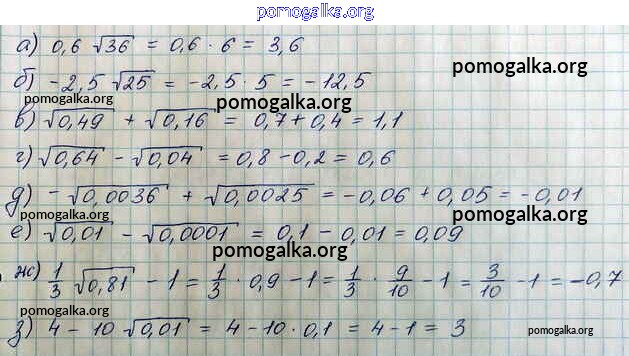 pomogalka.org
а) 0,6 √36 = 0,6 · 6 = 3,6
pomogalka.org
б) -2,5 √25 = -2,5 · 5 = -12,5
pomogalka.org
pomogalka.org
в) √0,49 + √0,16 = 0,7 + 0,4 = 1,1
г) √0,64 - √0,04 = 0,8 - 0,2 = 0,6
д) -√0,0036 + √0,0025 = -0,06 + 0,05 = -0,01
pomogalka.org
pomogalka.org
е) √0,01 - √0,0001 = 0,1 - 0,01 = 0,09
pomogalka.org
ж) 1/3 √0,81 - 1 = 1/3 · 0,9 - 1 = 1/3 · 9/10 - 1 = 3/10 - 1 = -0,7
pomogalka.org
з) 4 - 10 √0,01 = 4 - 10 · 0,1 = 4 - 1 = 3
pomogalka.org